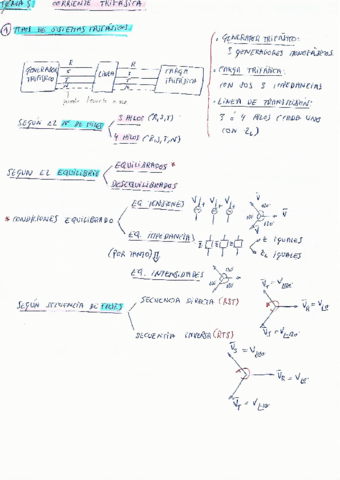 TEMA 5: CORRIENTE TRIFÁSICA
① TIPOS DE SISTEMAS TRIFÁSICOS:
GENERADOR TRIFÁSICO
R
S
T
N
LÍNEA
R
S
T
N
CARGA TRIFÁSICA
• GENERADOR TRIFÁSICO:
3 GENERADORES MONOFÁSICOS
• CARGA TRIFÁSICA:
CON SUS 3 IMPEDANCIAS
• LÍNEA DE TRANSMISIÓN:
3 ó 4 HILOS (CADA UNO
CON ZL)
SEGÚN EL Nº DE HILOS
3 HILOS (R,S,T)
4 HILOS (R,S,T,N)
SEGÚN EL EQUILIBRIO
EQUILIBRADOS *
DESEQUILIBRADOS
* CONDICIONES EQUILIBRADO
EQ. TENSIONES
EQ. IMPEDANCIAS
Z IGUALES
ZL IGUALES
(POR TANTO)
EQ. INTENSIDADES
SEGÚN SECUENCIA DE FASES
SECUENCIA DIRECTA (RST)
SECUENCIA INVERSA (RTS)